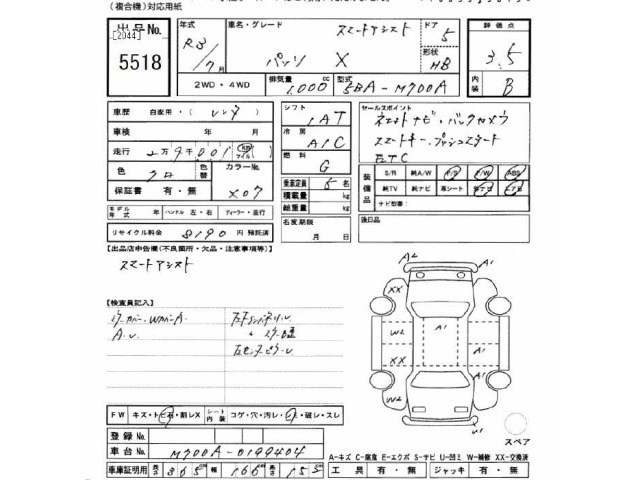 (複合機)対応用紙
出品No. [2044] 5518
年式 R3/7月
車名・グレード パッソ X スマートアシスト
ドア 5
形状 HB
評価点 3.5
内装 B
2WD・4WD
排気量 1,000 cc
型式 5BA-M700A
車歴 自家用・( レンタ )
車検 年 月
走行 2万9千001 km マイル
色 クロ 色替 カラーNo. X07
保証書 有・無
モデル年式 年 ハンドル 左・右 ディーラー・並行
リサイクル料金 8190 円 預託済
シフト IAT
冷房 A/C
燃料 G
乗車定員 5 名
積載量 kg
総重量 kg
名変期限 月 日
セールスポイント
ネットナビ・バックカメラ
スマートキー・プッシュスタート
ETC
装備品 S/R 純A/W P/S P/W ABS
純TV 純ナビ 革シート エアB
ナビ型番:
後日品
[出品店申告欄(不良箇所・欠品・注意事項等)]
スマートアシスト
[検査員記入]
A2 A1
XX
W2 A1 A1
XX A1
W2
U1
FW キズ・トビ石・割レX シート内装 コゲ・穴・汚レ・シミ・破レ・スレ
登録No.
車台No. M700A-0199404
スペア
A=キズ C=腐食 E=エクボ S=サビ U=凹ミ W=補修 XX=交換済
車庫証明用 長さ 365 cm 幅 166 cm 高さ 152
工具 有・無 ジャッキ 有・無